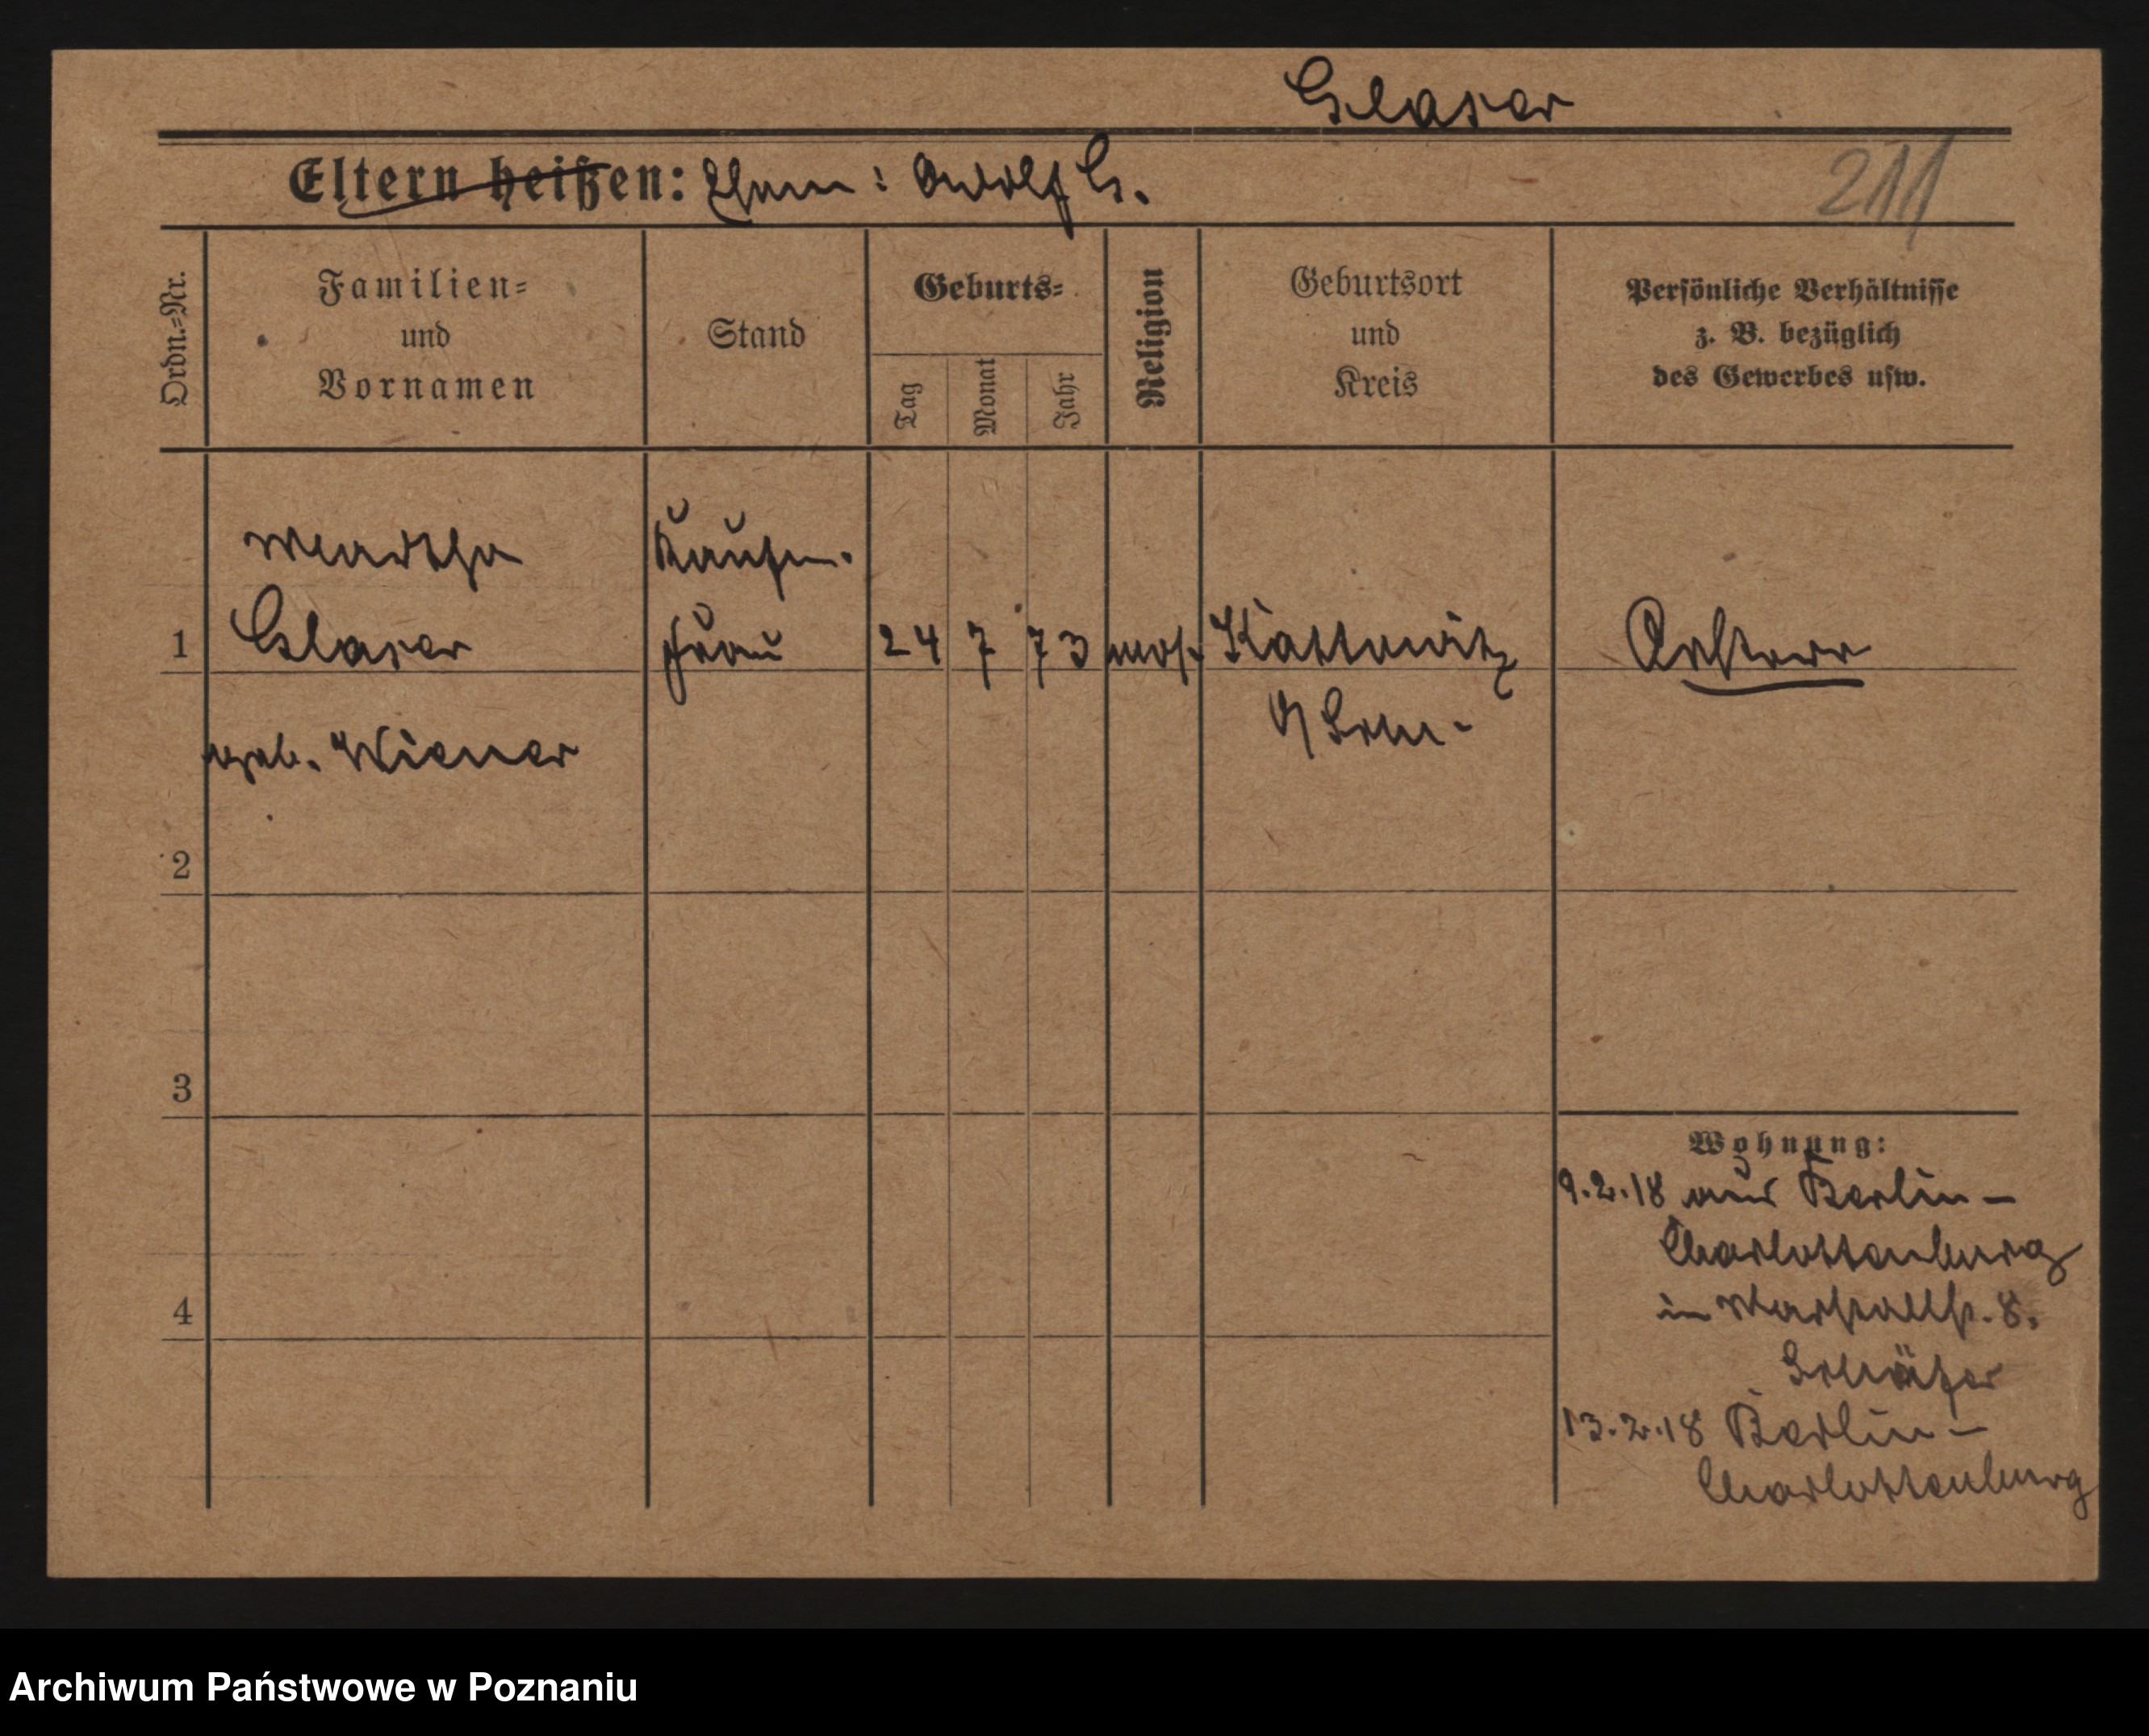 Glaser
Eltern heißen: Ehem: Adolf G.
211
Ordn.=Nr.
Familien=
und
Vornamen
Stand
Geburts=
Tag
Monat
Jahr
Religion
Geburtsort
und
Kreis
Persönliche Verhältnisse
z. B. bezüglich
des Gewerbes usw.
Martha
Kaufm.
1 Glaser frau 24 7 73 mos. Kattowitz
O/Schl.
geb. Wiener
2
3
4
Wohnung:
9.2.18 aus Berlin-
Charlottenburg
in 8.
Schäfer
13.2.18 Berlin-
Charlottenburg
Archiwum Państwowe w Poznaniu